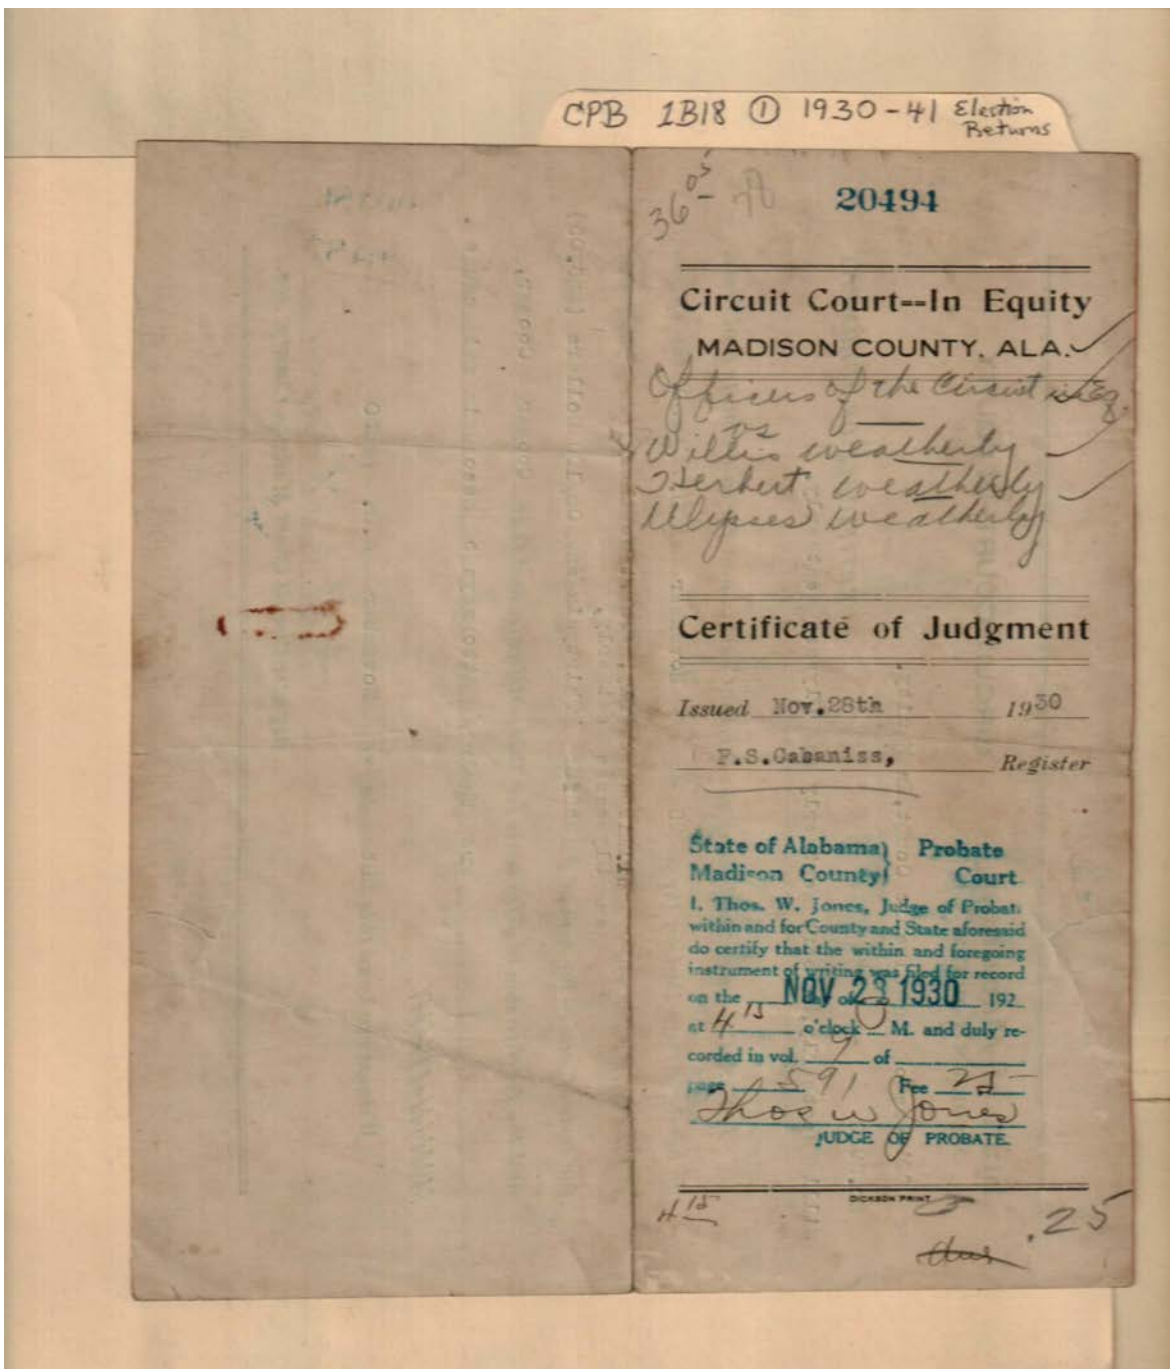 CPB 1B18 ① 1930-41 Election
Returns
36 05
20494
Circuit Court--In Equity
MADISON COUNTY, ALA.
Officers of the Circuit in Eq.
vs
Willis Weatherly
Herbert Weatherly
Ulysses Weatherly
Certificate of Judgment
Issued Nov.28th 1930
F.S.Cabaniss, Register
State of Alabama) Probate
Madison County) Court
I, Thos. W. Jones, Judge of Probat
within and for County and State aforesaid
do certify that the within and foregoing
instrument of writing was filed for record
on the NOV 28 1930 192
at 4 15 o'clock M. and duly re-
corded in vol. 9 of
page 591 Fee 25
Thos W Jones
JUDGE OF PROBATE.
DICKSON PRINT
4 15
.25